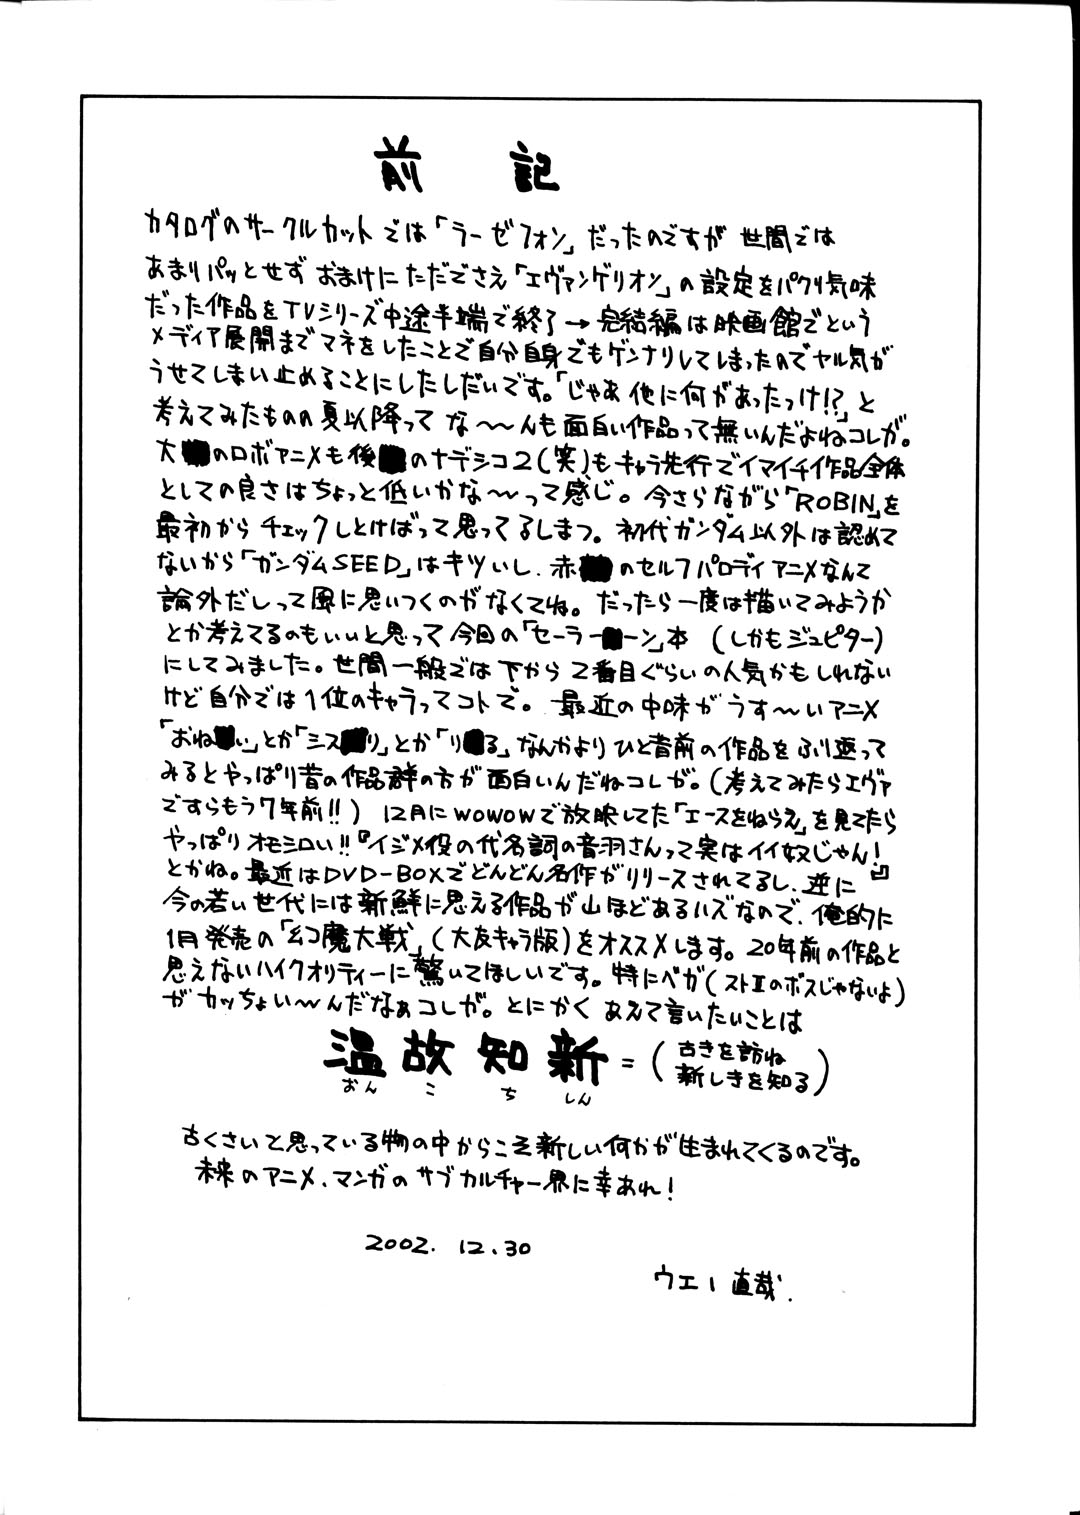 前記
カタログのサークルカットでは「ラーゼフォン」だったのですが世間では
あまりパッとせずおまけにただでさえ「エヴァンゲリオン」の設定をパクリ気味
だった作品をTVシリーズ中途半端で終了→完結編は映画館でという
メディア展開までマネをしたことで自分自身でもゲンナリしてしまったのでヤル気が
うせてしまい止めることにしたしだいです。「じゃあ他に何があったっけ!?」と
考えてみたものの夏以降ってな〜〜んも面白い作品って無いんだよねコレが。
大■のロボアニメも後■のナデシコ2(笑)もキャラ先行でイマイチ作品全体
としての良さはちょっと低いかな〜〜って感じ。今さらながら「ROBIN」を
最初からチェックしとけばって思ってるしまつ。初代ガンダム以外は認めて
ないから「ガンダムSEED」はキツいし、赤■のセルフパロディアニメなんて
論外だしって風に思いつくのがなくてね。だったら一度は描いてみようか
とか考えてるのもいいと思って今回の「セーラー■ーン」本(しかもジュピター)
にしてみました。世間一般では下から2番目ぐらいの人気かもしれない
けど自分では1位のキャラってコトで。最近の中味がうす〜いアニメ
「おね■い」とか「シス■リ」とか「リ■る」なんかよりひと昔前の作品をふり返って
みるとやっぱり昔の作品群の方が面白いんだねコレが。(考えてみたらエヴァ
ですらもう7年前!!) 12月にWOWOWで放映してた「エースをねらえ」を見てたら
やっぱりオモシロい!!『イジメ役の代名詞の音羽さんって実はイイ奴じゃん!』
とかね。最近はDVD-BOXでどんどん名作がリリースされてるし、逆に
今の若い世代には新鮮に思える作品が山ほどあるハズなので、俺的に
1月発売の「幻魔大戦」(大友キャラ版)をオススメします。20年前の作品と
思えないハイクオリティーに驚いてほしいです。特にベガ(ストIIのボスじゃないよ)
がカッちょい〜〜んだなぁコレが。とにかくあえて言いたいことは
温故知新=(古きを訪ね
新しきを知る)
おんこちしん
古くさいと思っている物の中からこそ新しい何かが生まれてくるのです。
未来のアニメ、マンガのサブカルチャー界に幸あれ!
2002.12.30
ウエー直哉.